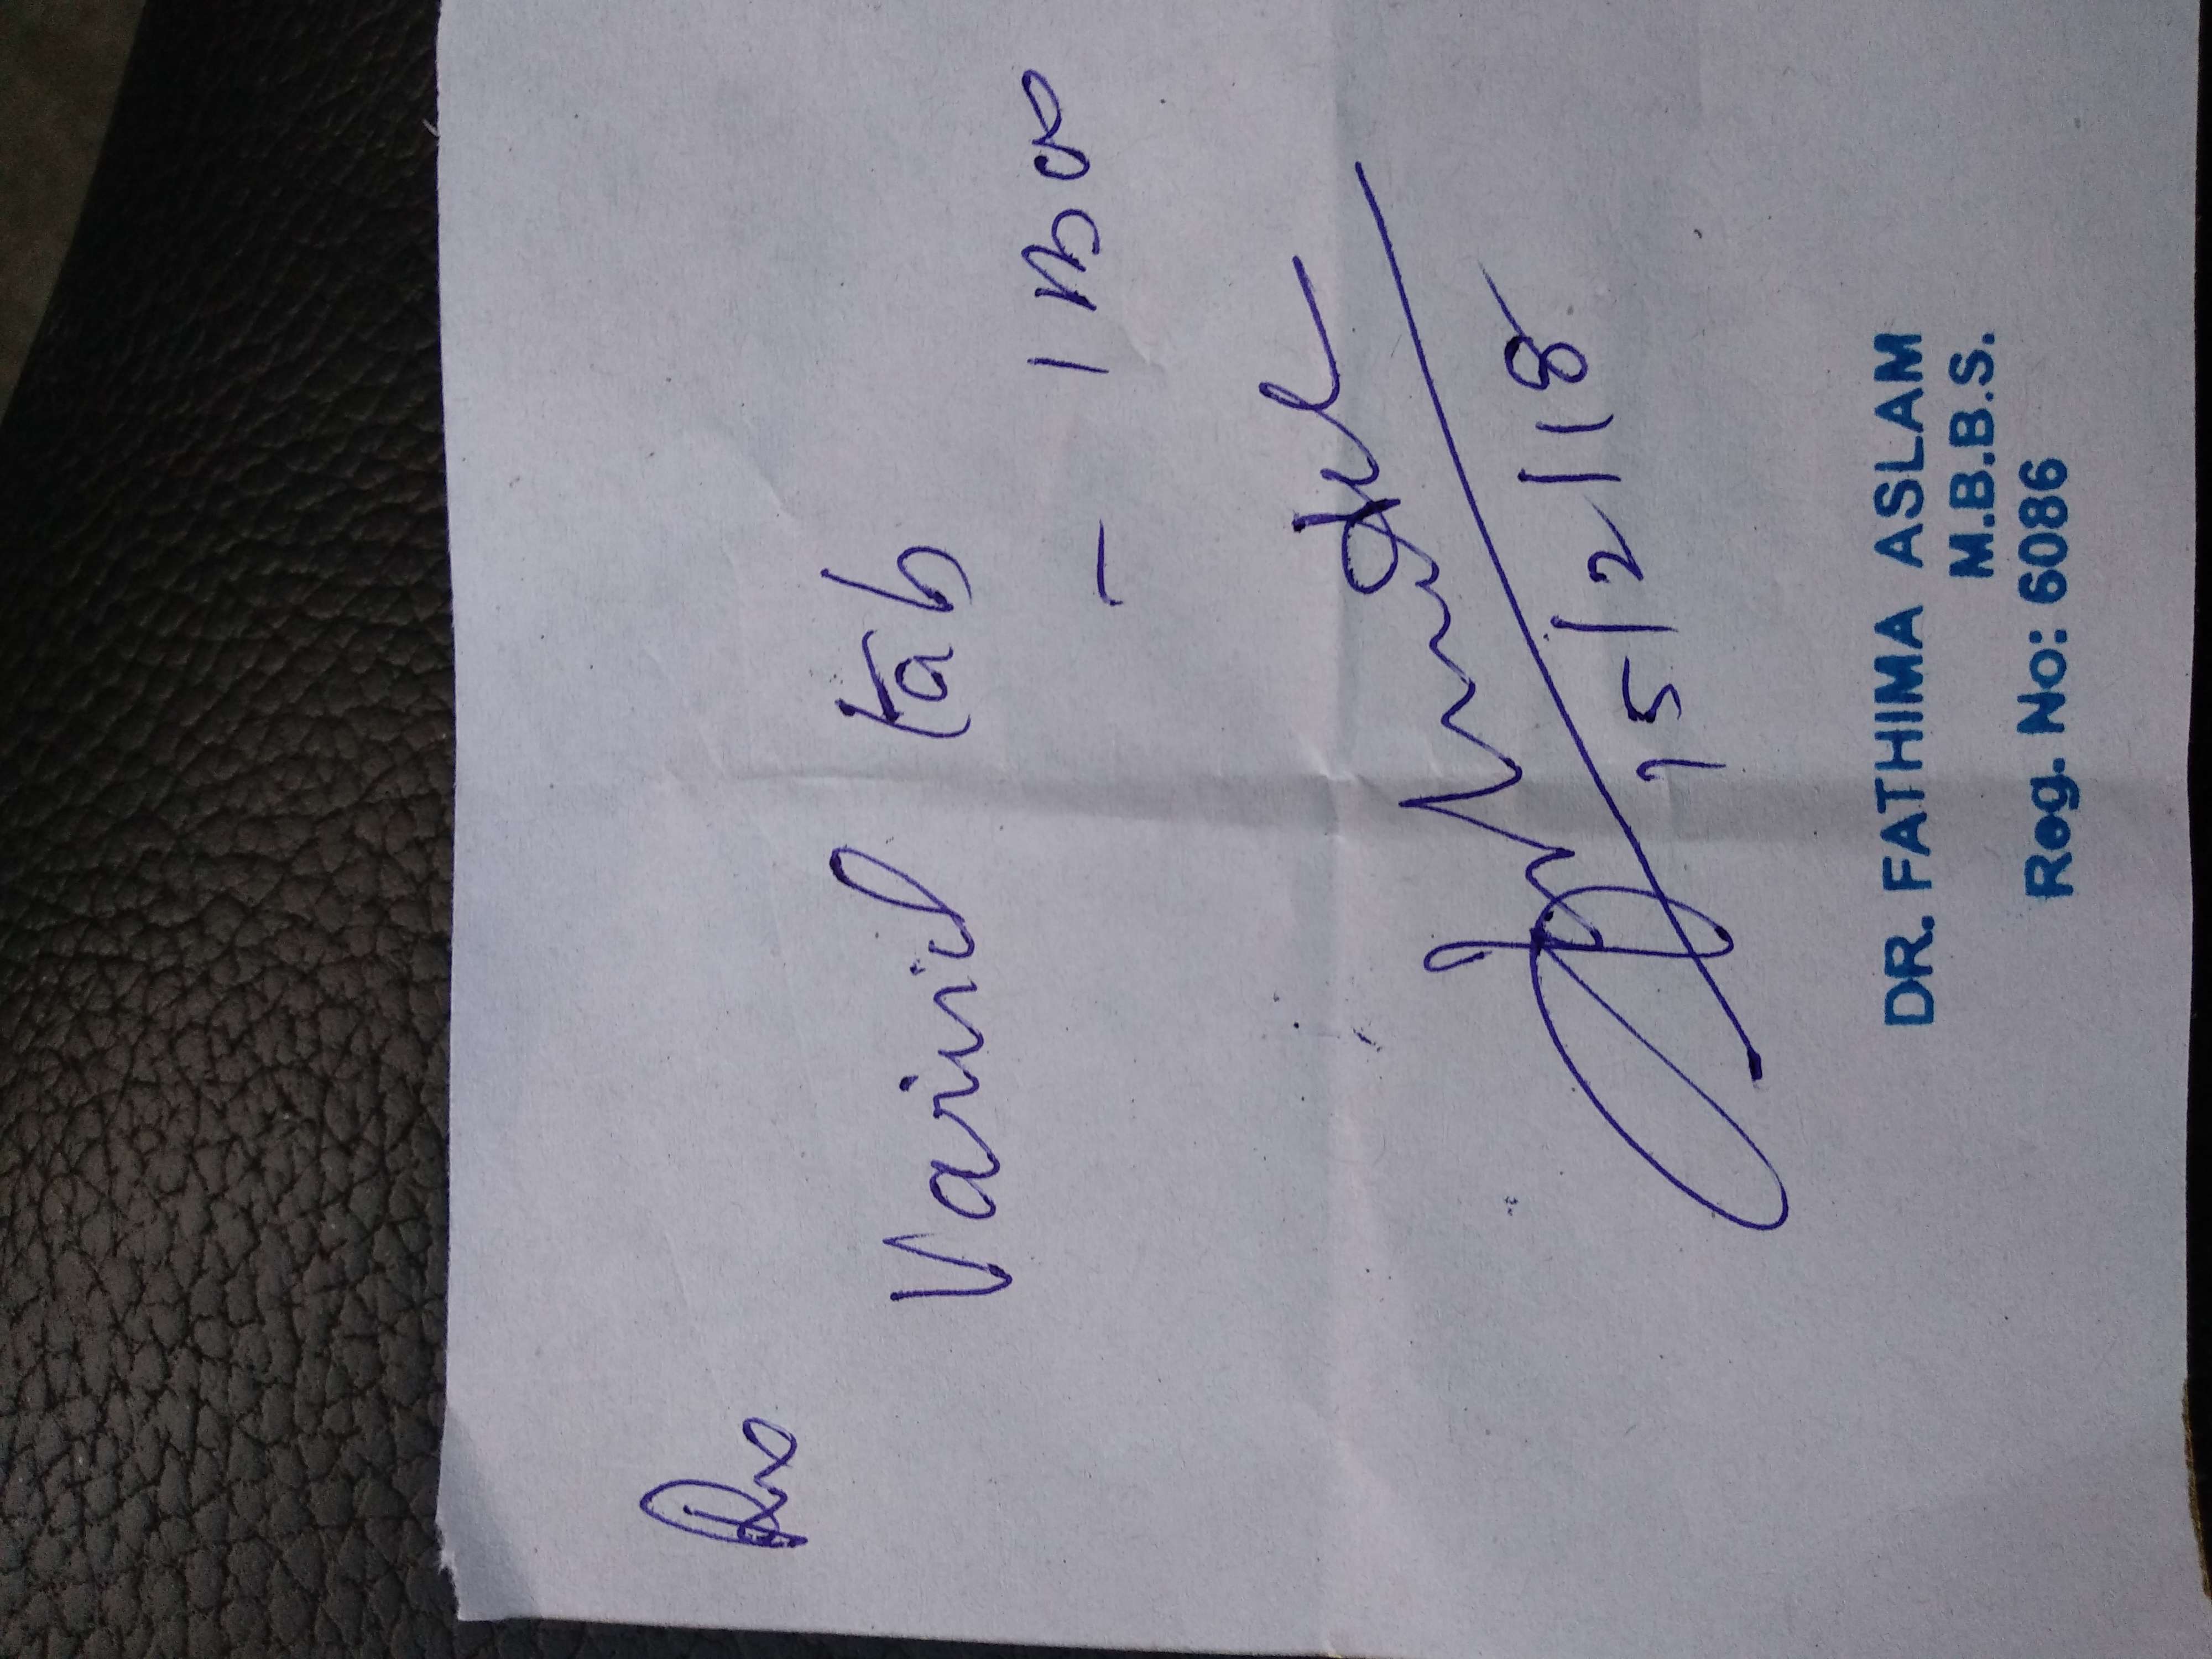 Rx
Varivid tab
- 1 Box
15/2/18
DR. FATHIMA ASLAM
M.B.B.S.
Reg. No: 6086